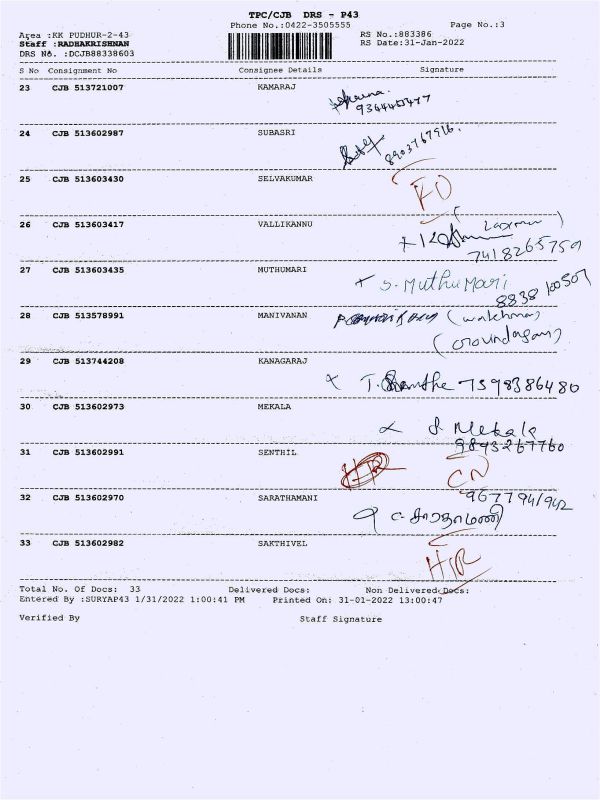 TPC/CJB DRS - P43
Phone No.:0422-3505555
Page No.:3
Area :KK PUDHUR-2-43
RS No.:883386
Staff :RADHAKRISHNAN
RS Date:31-Jan-2022
DRS No. :DCJB88338603
S No Consignment No Consignee Details Signature
23 CJB 513721007 KAMARAJ
24 CJB 513602987 SUBASRI
8903767916.
25 CJB 513603430 SELVAKUMAR
26 CJB 513603417 VALLIKANNU
7418265759
27 CJB 513603435 MUTHUMARI
S. MuthuMari
8838100507
28 CJB 513578991 MANIVANAN
(watchman)
(Govindagan)
29 CJB 513744208 KANAGARAJ
7598386480
30 CJB 513602973 MEKALA
S. Mekala
9893267760
31 CJB 513602991 SENTHIL
CN
32 CJB 513602970 SARATHAMANI
9677941942
சாரதாமணி
33 CJB 513602982 SAKTHIVEL
Total No. Of Docs: 33 Delivered Docs: Non Delivered Docs:
Entered By :SURYAP43 1/31/2022 1:00:41 PM Printed On: 31-01-2022 13:00:47
Verified By Staff Signature